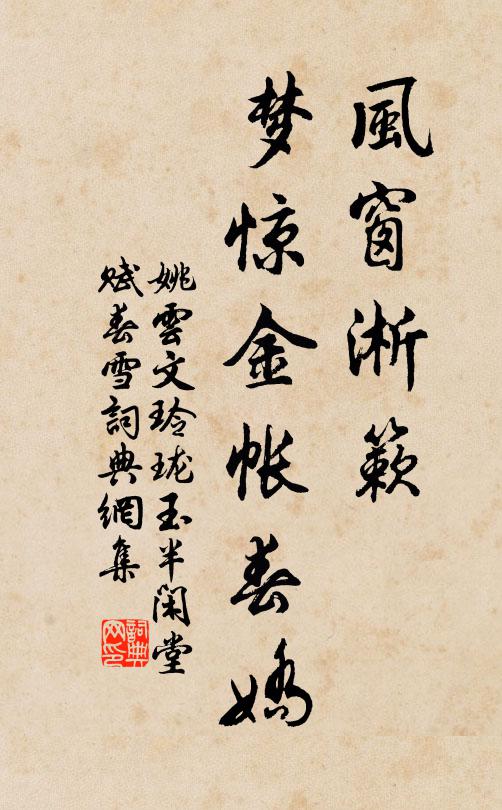 風窗淅簌
梦惊金帐春嬌
姚雲文玲瓏玉半闲堂
赋春雪詞典網集
詞典
网印